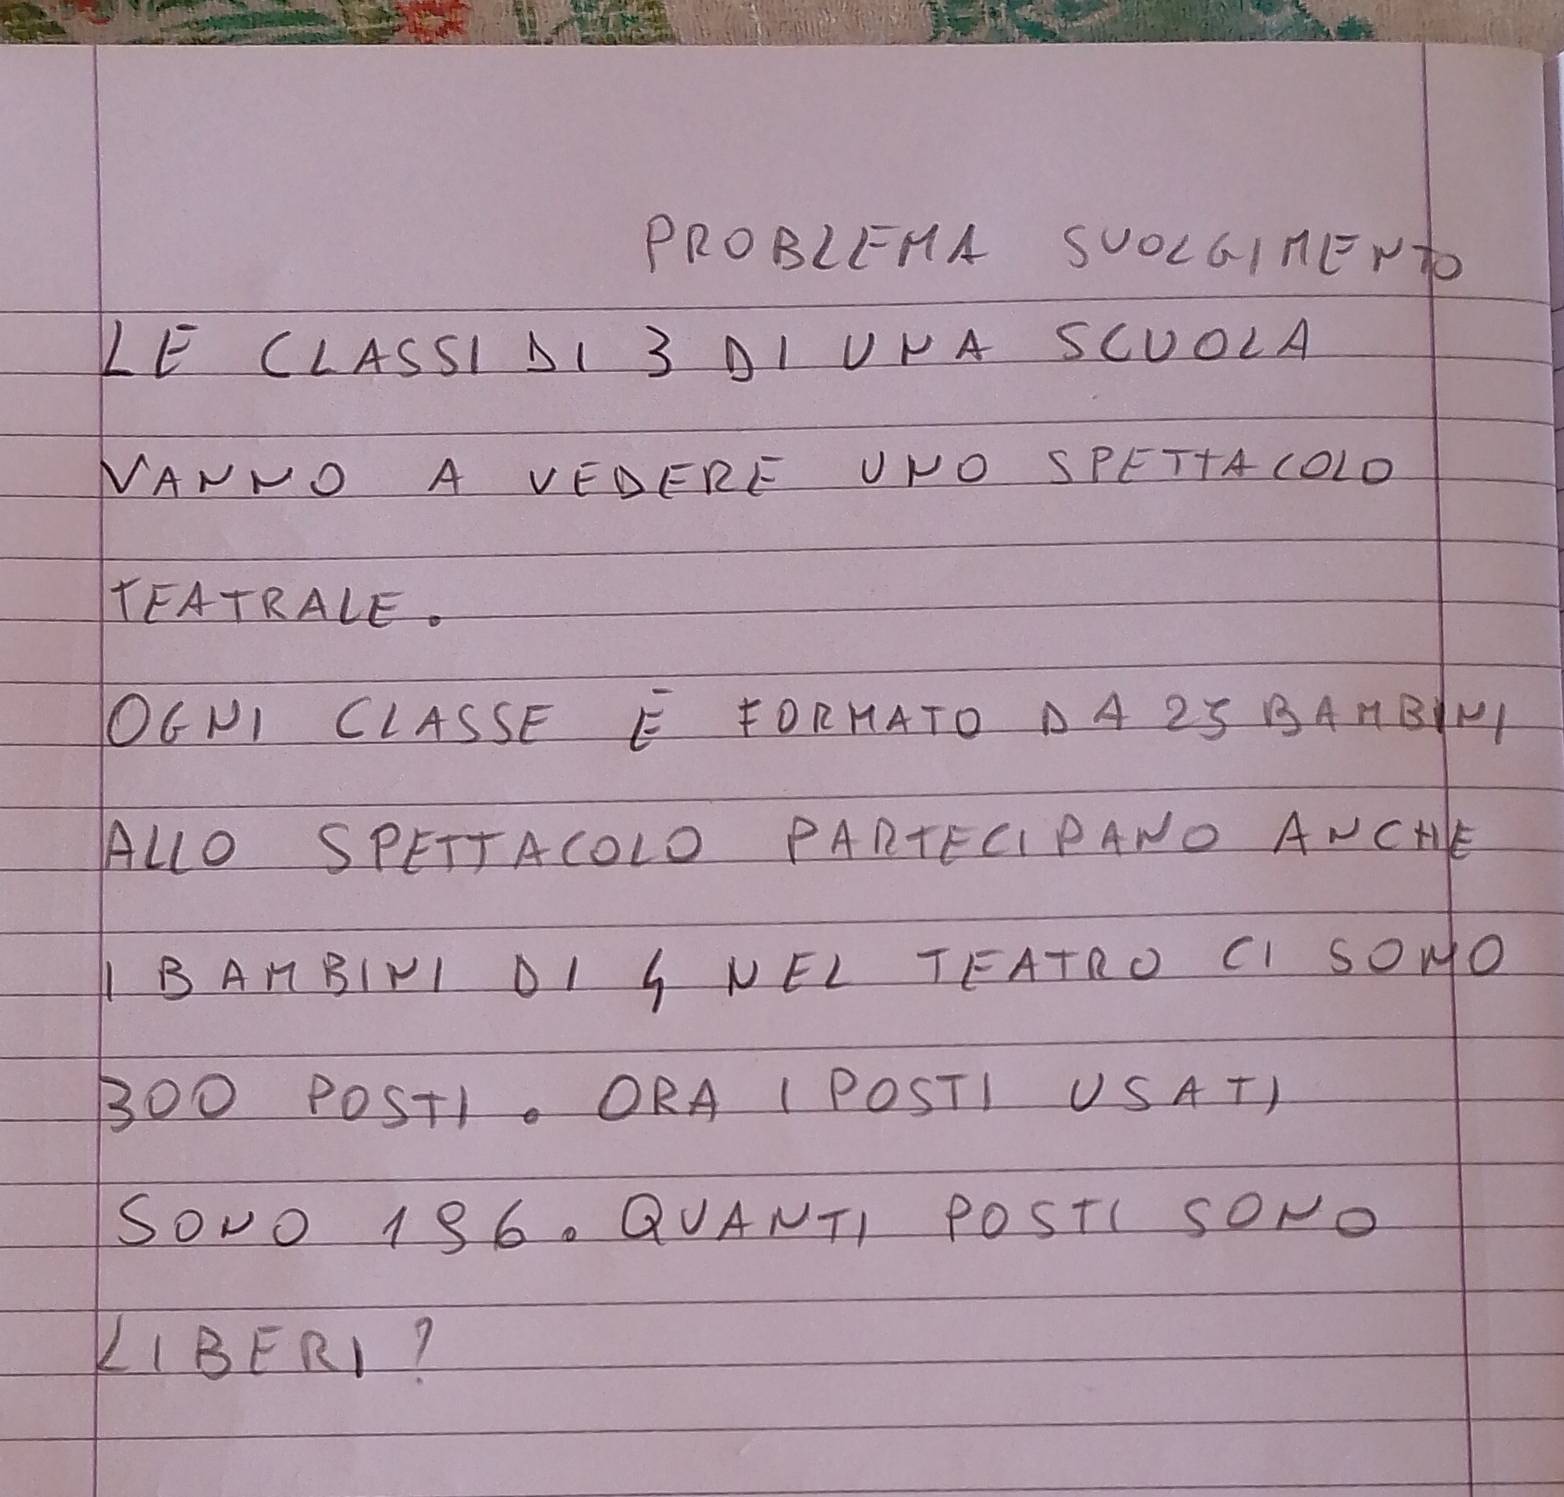 PROBLEMA SVOLGIMENTO
LE CLASSI DI 3 DI UNA SCUOLA
VANNO A VEDERE UNO SPETTACOLO
TEATRALE.
OGNI CLASSE È FORMATO DA 25 BAMBINI
ALLO SPETTACOLO PARTECIPANO ANCHE
I BAMBINI DI 4 NEL TEATRO CI SONO
300 POSTI. ORA I POSTI USATI
SONO 196. QUANTI POSTI SONO
LIBERI?